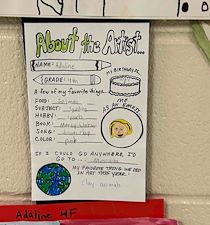 About the Artist...
NAME: Adaline
MY BIRTHDAY IS:
GRADE: 4th
A few of my favorite things...
ME AS AN EMOJI
FOOD: Salmon
SUBJECT:
HOBBY:
BOOK:
SONG:
COLOR: pink
IF I COULD GO ANYWHERE I'D
GO TO...
MY FAVORITE THING WE DID
IN ART THIS YEAR:
Clay animals
Adaline 4F